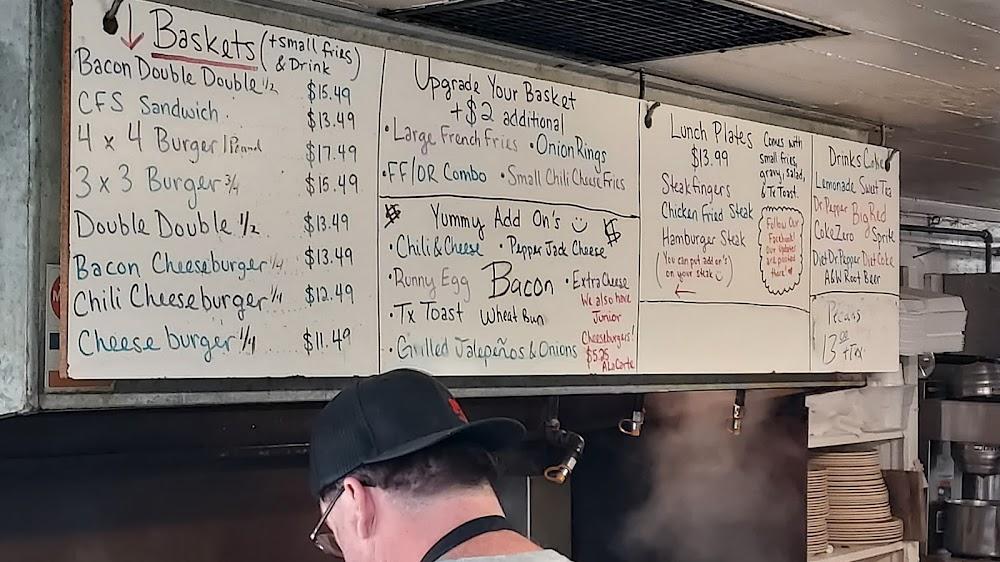 Baskets (+small fries & Drink)
Bacon Double Double 1/2 $15.49
CFS Sandwich $13.49
4 x 4 Burger 1 Pound $17.49
3 x 3 Burger 3/4 $15.49
Double Double 1/2 $13.49
Bacon Cheeseburger 1/4 $13.49
Chili Cheeseburger 1/4 $12.49
Cheeseburger 1/4 $11.49
Upgrade Your Basket
+$2 additional
•Large French Fries •Onion Rings
•FF/OR Combo •Small Chili Cheese Fries
$ Yummy Add On's $
•Chili & Cheese •Pepper Jack Cheese
•Runny Egg Bacon •Extra Cheese
•Tx Toast Wheat Bun
•Grilled Jalapeños & Onions
We also have
Junior
Cheeseburgers!
$5.25
ALaCarte
Lunch Plates
$13.99
Comes with
small fries,
gravy, salad,
& Tx Toast.
Steakfingers
Chicken Fried Steak
Hamburger Steak
(You can put add on's
on your steak)
Follow Our
Facebook!
Our updates
are posted
there!
Drinks Coke
Lemonade Sweet Tea
Dr. Pepper Big Red
Coke Zero Sprite
Diet Dr. Pepper Diet Coke
A&W Root Beer
13.00 + Tax